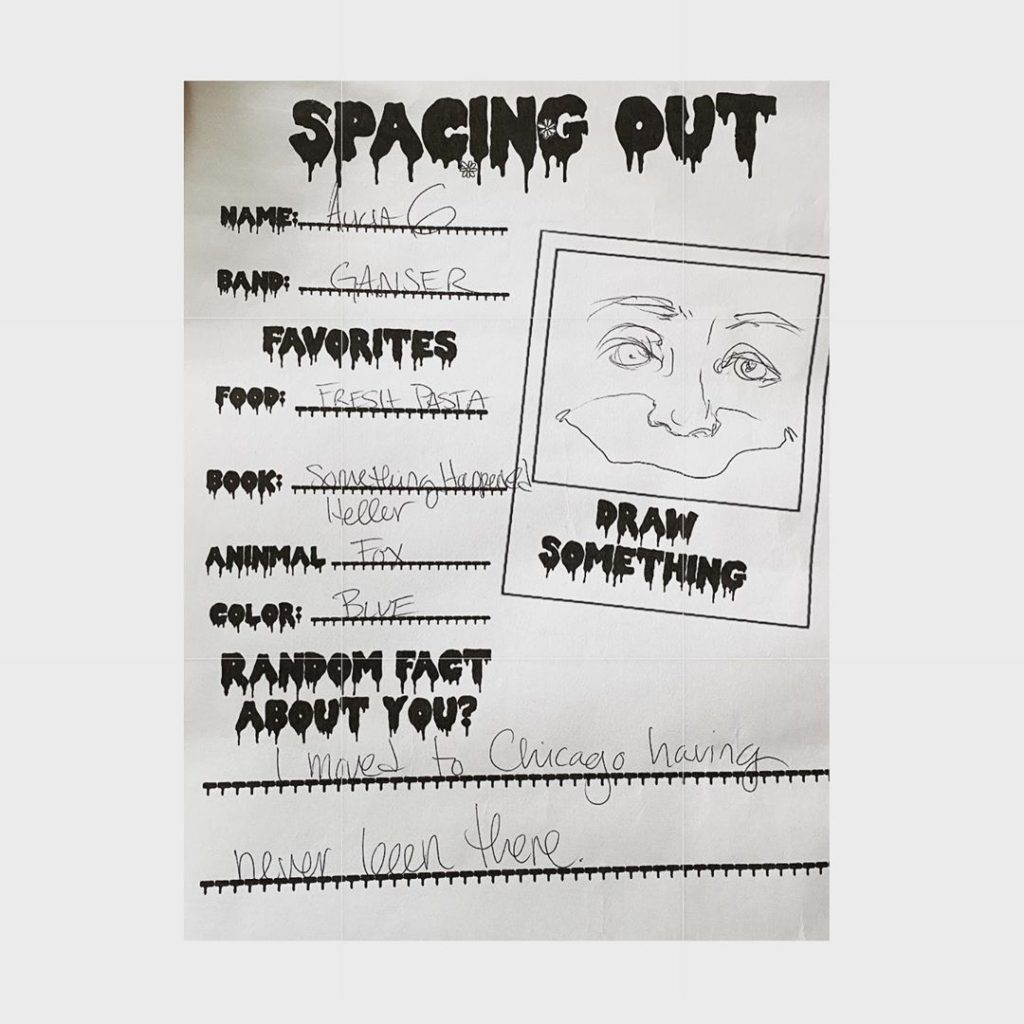 SPACING OUT
NAME: ALICIA G
BAND: GANSER
FAVORITES
FOOD: FRESH PASTA
BOOK: Something Happened
Heller
ANINMAL Fox
COLOR: BLUE
DRAW
SOMETHING
RANDOM FACT
ABOUT YOU?
I moved to Chicago having
never been there.